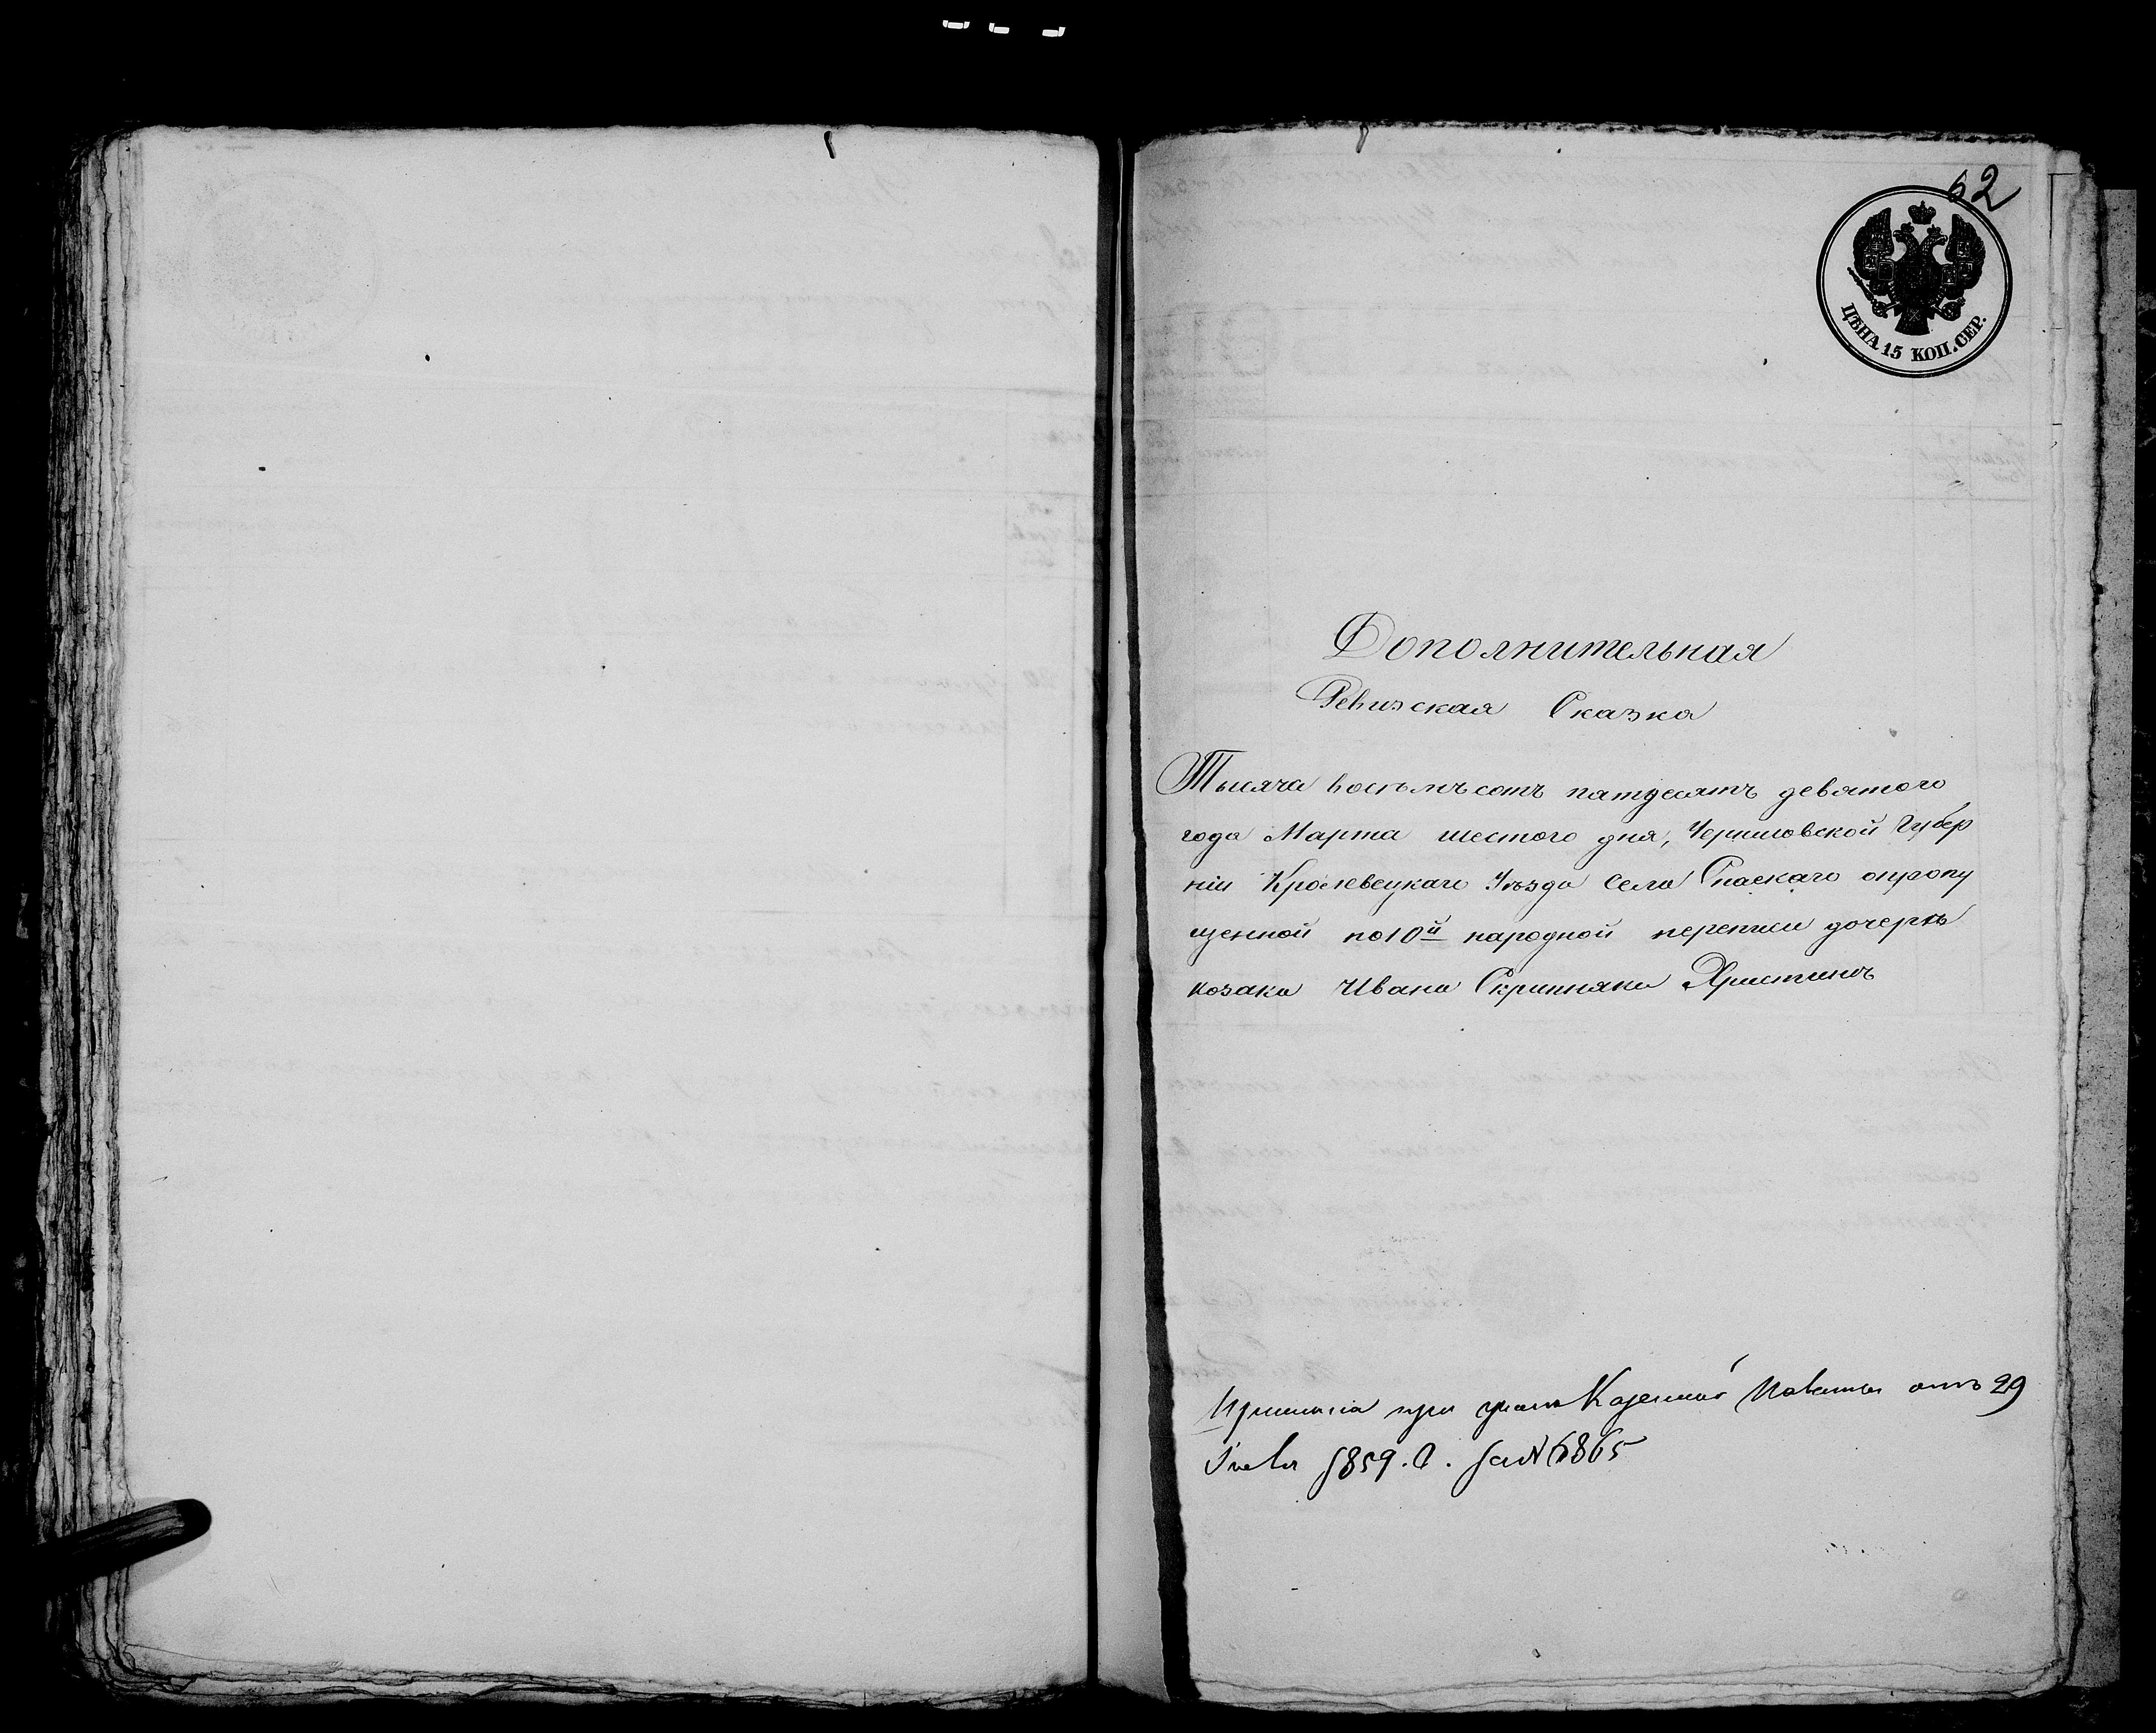 62
ЦѢНА 15 КОП. СЕР.
Дополнительная
Ревизская Сказка
Тысяча восемьсотъ патдесятъ девятого
года Марта шестого дня, Черниговской Губер
ніи Кролевецкаго Уѣзда Села Спаскаго опропу
щенной по 10й народной переписи дочерѣ
козака Ивана Скрипняка Христинѣ
при Казенной Палаты отъ 29
1859. За № 6865